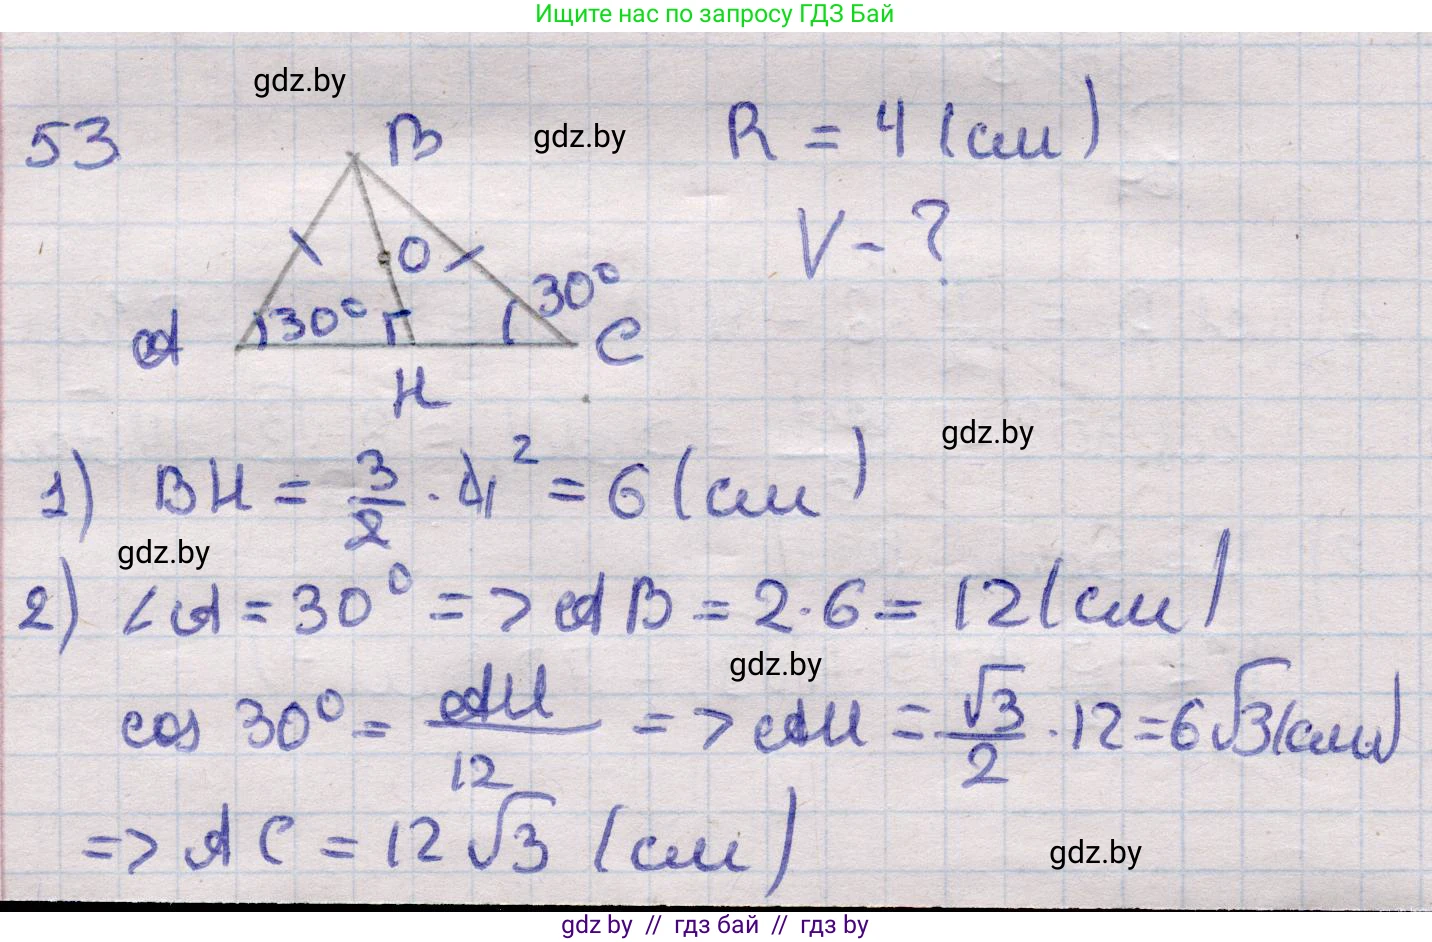 Ищите нас по запросу ГДЗ Бай
gdz.by
53
B
gdz.by
R = 4 (см)
V - ?
O
30°
30°
A
C
H
gdz.by
1) BH = 3/2 · 4² = 6 (см)
gdz.by
2) ∠A = 30° => AB = 2·6 = 12 (см)
gdz.by
cos 30° = AH/12 => AH = √3/2 · 12 = 6√3 (см)
=> AC = 12√3 (см)
gdz.by
gdz.by // гдз бай // гдз by